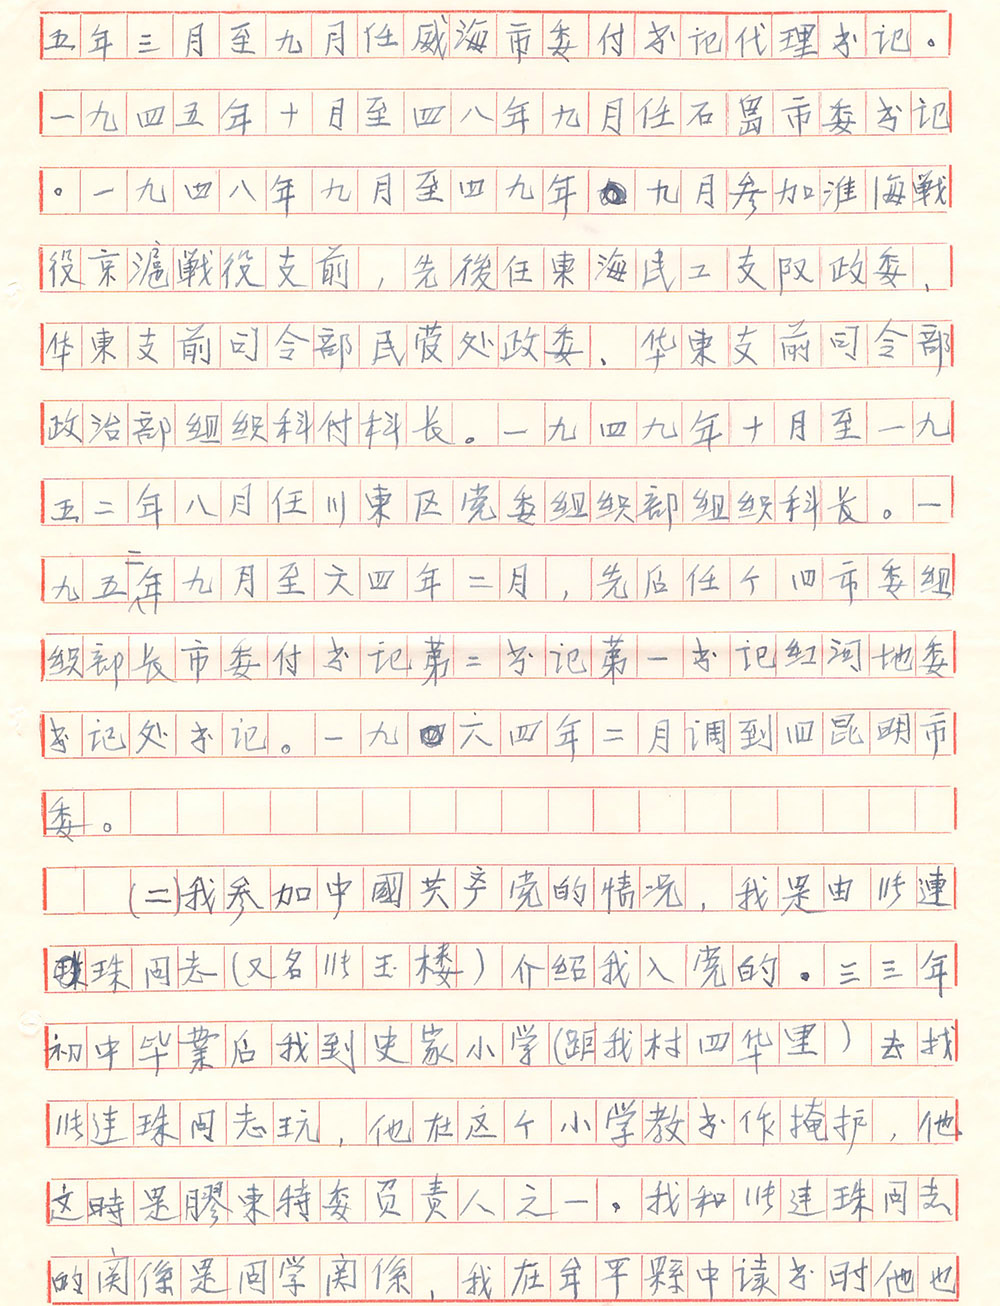 五年三月至九月任威海市委付书记代理书记。
一九四五年十月至四八年九月任石島市委书记
。一九四八年九月至四九年九月参加淮海戰
役京滬戰役支前，先後任東海民工支队政委、
华東支前司令部民营处政委、华東支前司令部
政治部组织科付科长。一九四九年十月至一九
五二年八月任川東区党委组织部组织科长。一
九五二年九月至六四年二月，先后任个旧市委组
织部长市委付书记第二书记第一书记红河地委
书记处书记。一九六四年二月调到旧昆明市
委。
(二)我参加中國共产党的情况，我是由张連
珠同志(又名张玉楼)介紹我入党的。三三年
初中毕業后我到史家小学(距我村四华里)去找
张連珠同志玩，他在这个小学教书作掩护，他
这時是膠東特委负责人之一。我和张連珠同志
的関係是同学関係，我在牟平縣中读书时他也